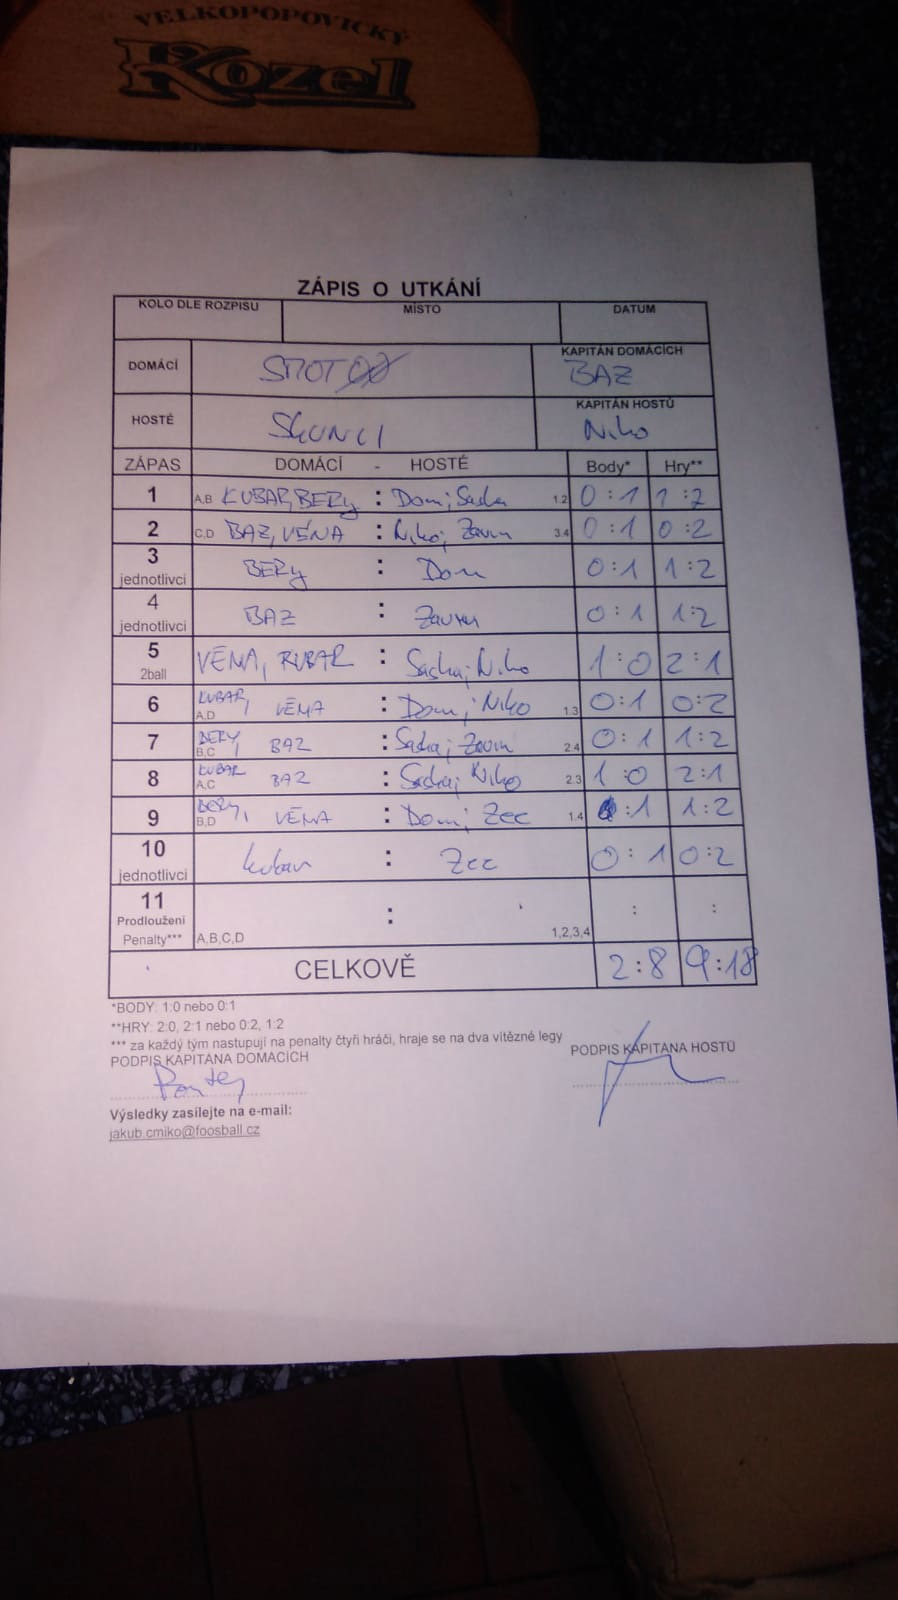 VELKOPOPOVICKÝ
Kozel
ZÁPIS O UTKÁNÍ
KOLO DLE ROZPISU MÍSTO DATUM
DOMÁCÍ KAPITÁN DOMÁCÍCH
BAZ
HOSTÉ SKUNCI KAPITÁN HOSTŮ
Niko
ZÁPAS DOMÁCÍ - HOSTÉ Body* Hry**
1 A,B KUBAR, BERY : Dom; Saska 1.2 0:1 1:2
2 C,D BAZ, VÉNA : Niko; Zavin 3.4 0:1 0:2
3 jednotlivci BERY : Dom 0:1 1:2
4 jednotlivci BAZ : 0:1 1:2
5 2ball VÉNA, KUBAR : Saska; Niko 1:0 2:1
6 KUBAR, A,D VÉNA : Dom; Niko 1.3 0:1 0:2
7 BERY, B,C BAZ : Saska; Zavin 2.4 0:1 1:2
8 KUBAR A,C BAZ : Saska; Niko 2.3 1:0 2:1
9 BERY, B,D VÉNA : Dom; Zec 1.4 0:1 1:2
10 jednotlivci Kubar : Zec 0:1 0:2
11 Prodloužení Penalty*** A,B,C,D : 1,2,3,4 : :
CELKOVĚ 2:8 9:18
*BODY: 1:0 nebo 0:1
**HRY: 2:0, 2:1 nebo 0:2, 1:2
*** za každý tým nastupují na penalty čtyři hráči, hraje se na dva vítězné legy
PODPIS KAPITÁNA DOMÁCÍCH PODPIS KAPITÁNA HOSTŮ
Výsledky zasílejte na e-mail:
jakub.cmiko@foosball.cz